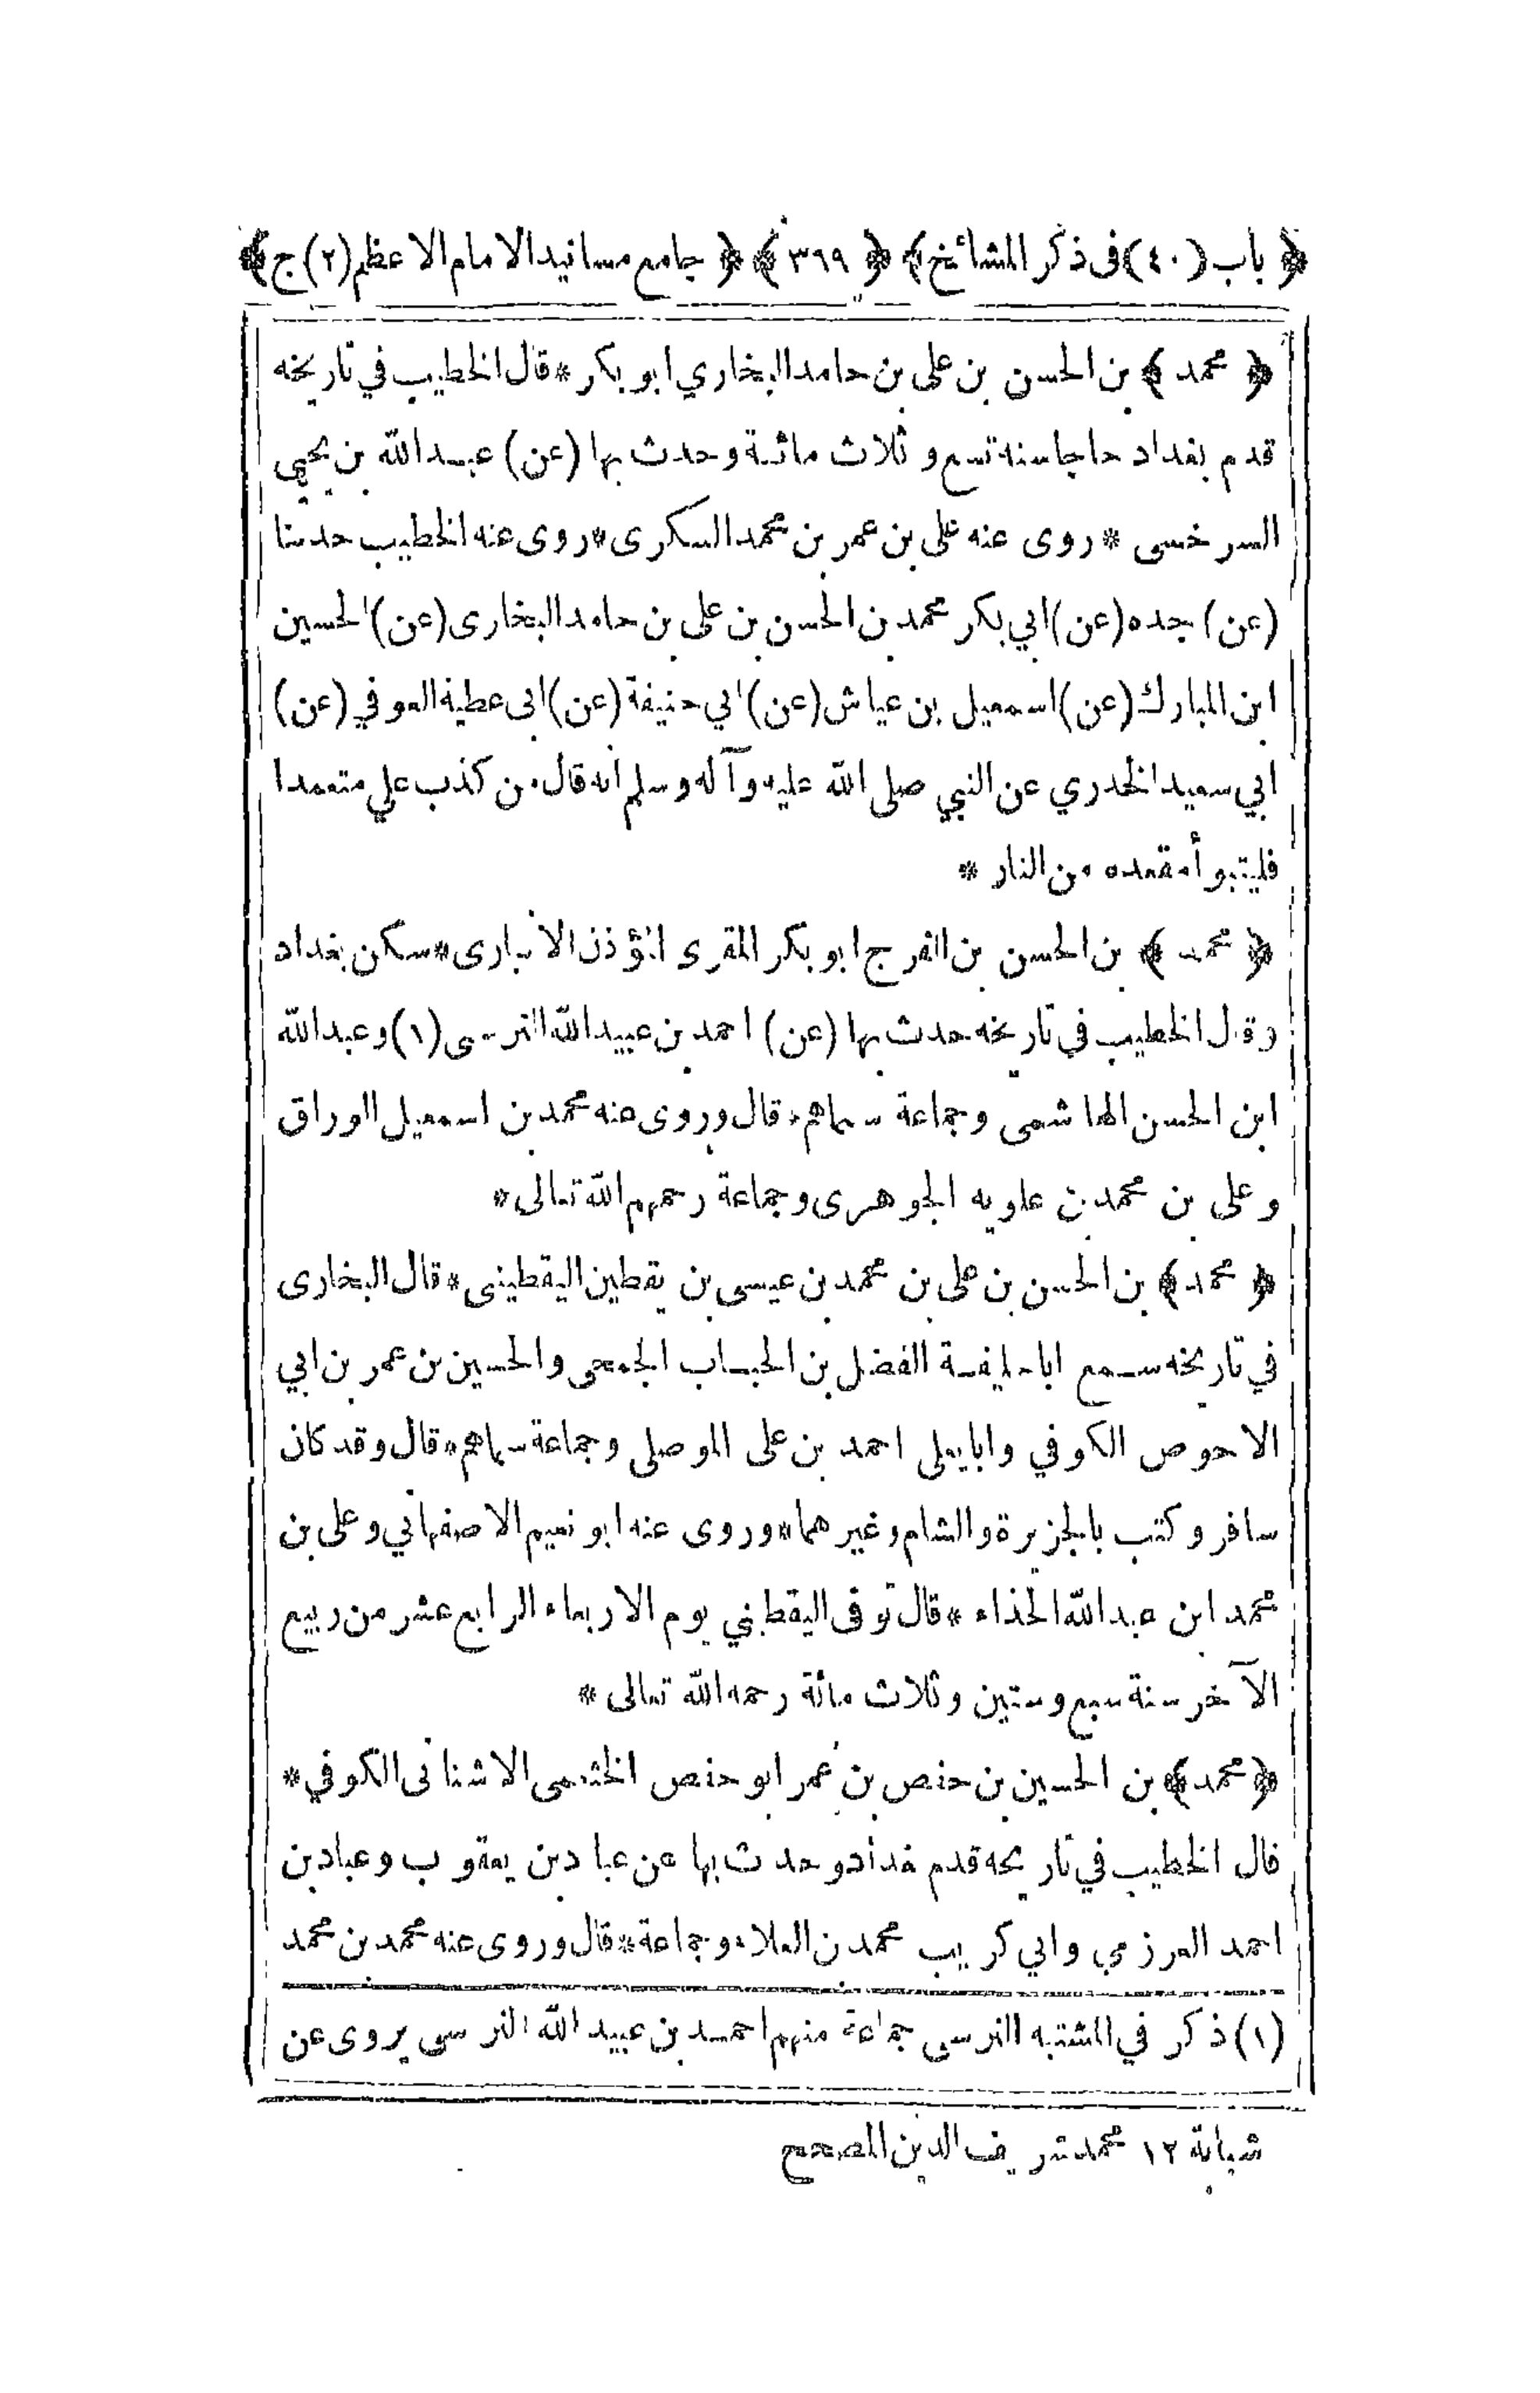 ﴿ باب (٤٠) فى ذكر المشائخ ﴾ ﴿ ٣٦٩ ﴾ ﴿ جامع مسانيد الامام الاعظم (٢) ج ﴾
﴿ محمد ﴾ بن الحسن بن على بن حامد البخاري ابو بكر * قال الخطيب في تاريخه
قدم بغداد حاجا سنة تسع و ثلاث مائة وحدث بها (عن) عبد الله بن يحيى
السرخسى * روى عنه على بن عمر بن محمد السكرى * روى عنه الخطيب حديثا
(عن) جده (عن) ابي بكر محمد بن الحسن بن على بن حامد البخارى (عن) الحسين
ابن المبارك (عن) اسمعيل بن عياش (عن) ابي حنيفة (عن) ابى عطية العوفي (عن)
ابي سعيد الخدري عن النبي صلى الله عليه وآله وسلم انه قال من كذب علي متعمدا
فليتبوأ مقعده من النار *
﴿ محمد ﴾ بن الحسن بن الفرج ابو بكر المقرى المؤذن الانبارى * سكن بغداد
وقال الخطيب في تاريخه حدث بها (عن) احمد بن عبيد الله النرسى (١) وعبد الله
ابن الحسن الهاشمى وجماعة سماهم * قال وروى عنه محمد بن اسمعيل الوراق
وعلى بن محمد بن علويه الجوهرى وجماعة رحمهم الله تعالى *
﴿ محمد ﴾ بن الحسن بن على بن محمد بن عيسى بن يقطين اليقطينى * قال البخارى
في تاريخه سمع ابا خليفة الفضل بن الحباب الجمحى والحسين بن عمر بن ابي
الاحوص الكوفي وابا يعلى احمد بن على الموصلى وجماعة سماهم * قال وقد كان
سافر وكتب بالجزيرة والشام وغيرهما * وروى عنه ابو نعيم الاصفهاني وعلى بن
محمد ابن عبد الله الحذاء * قال توفى اليقطيني يوم الاربعاء الرابع عشر من ربيع
الآخر سنة سبع وستين وثلاث مائة رحمه الله تعالى *
﴿ محمد ﴾ بن الحسين بن حفص بن عمر ابو حفص الخثعمى الاشنانى الكوفي *
قال الخطيب في تاريخه قدم بغداد وحدث بها عن عباد بن يعقوب وعباد بن
احمد العرزمي وابي كريب محمد بن العلاء وجماعة * قال وروى عنه محمد بن محمد
(١) ذكر في المشتبه النرسى جماعة منهم احمد بن عبيد الله النرسى يروى عن
شبابة ١٢ محمد شريف الدين المصحح